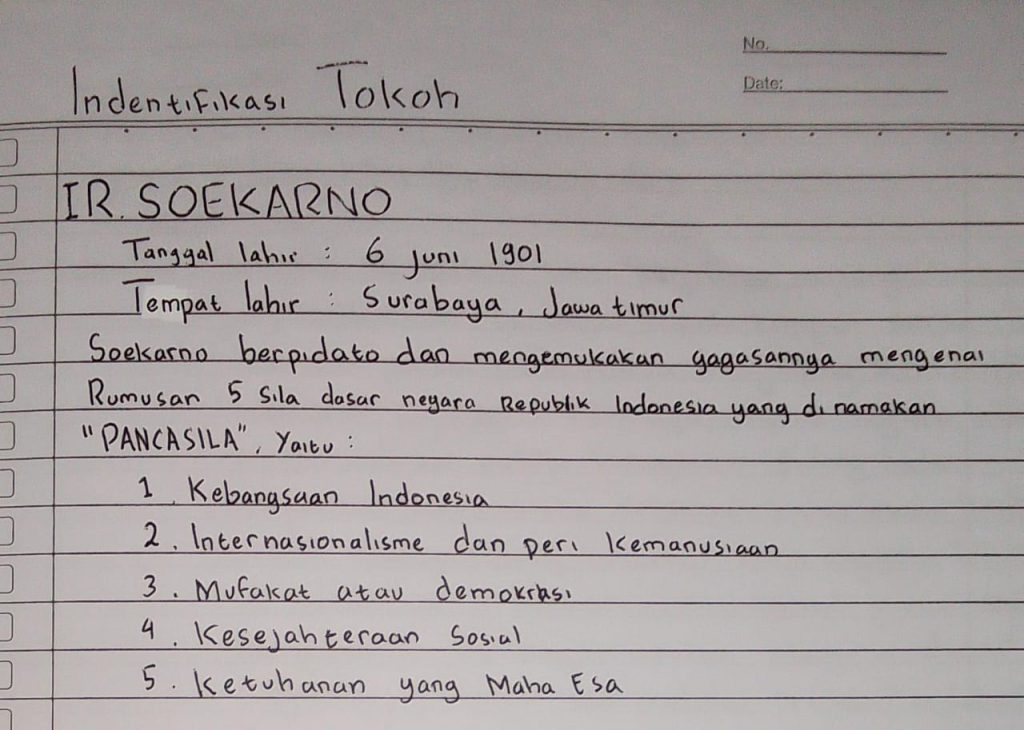 No.
Date:
Indentifikasi Tokoh
IR. SOEKARNO
Tanggal lahir : 6 Juni 1901
Tempat lahir : Surabaya, Jawa timur
Soekarno berpidato dan mengemukakan gagasannya mengenai
Rumusan 5 Sila dasar negara Republik Indonesia yang di namakan
"PANCASILA", Yaitu :
1. Kebangsaan Indonesia
2. Internasionalisme dan peri kemanusiaan
3. Mufakat atau demokrasi
4. Kesejahteraan Sosial
5. Ketuhanan yang Maha Esa